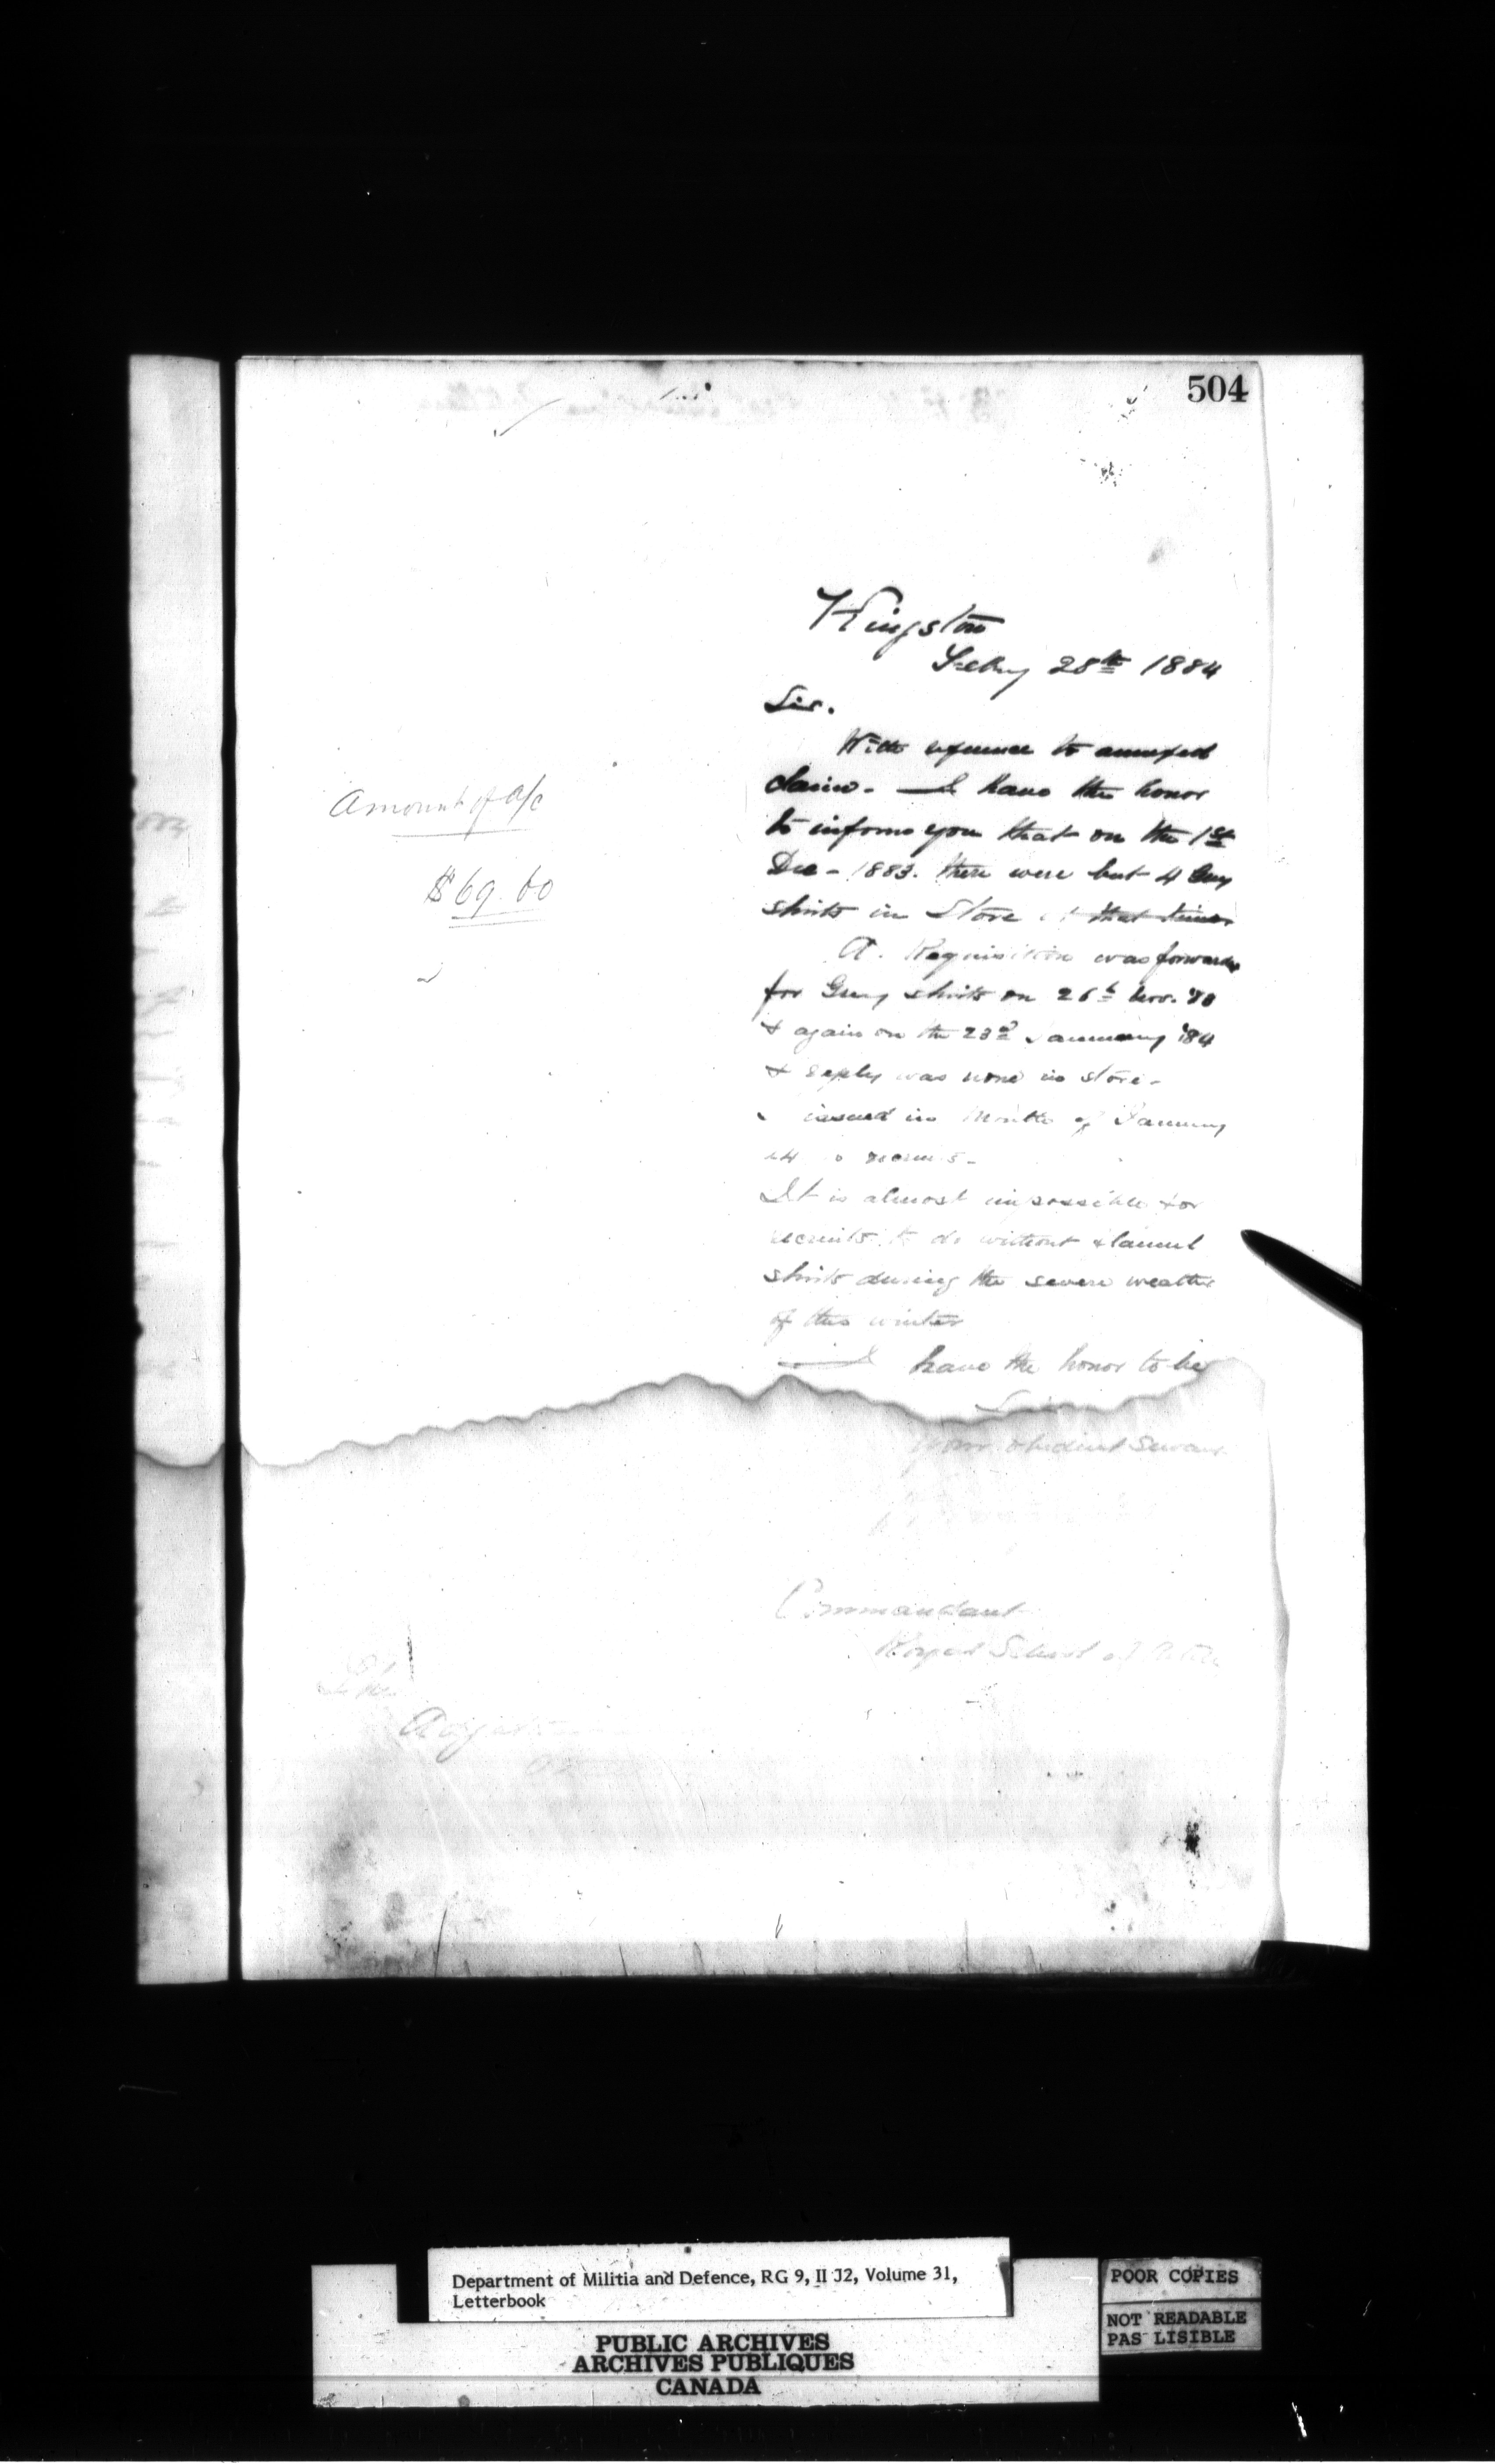 504
Kingston
Feby 28th 1884
Sir.
With reference to annexed
claim - I have the honor
to inform you that on the 1st
Dec - 1883. there were but 4 Grey
shirts in Store at that time
A. Requisition was forwarded
for Grey shirts on 26th Nov.
& again on the 23rd January '84
& reply was none in store -
issued in Month of January
It is almost impossible for
recruits to do without flannel
shirts during the severe weather
of this winter
I have the honor to be
Sir
Your obedient Servant
Commandant
Royal School of
Amount of a/c
$69.60
Department of Militia and Defence, RG 9, II J2, Volume 31,
Letterbook
PUBLIC ARCHIVES
ARCHIVES PUBLIQUES
CANADA
POOR COPIES
NOT READABLE
PAS LISIBLE